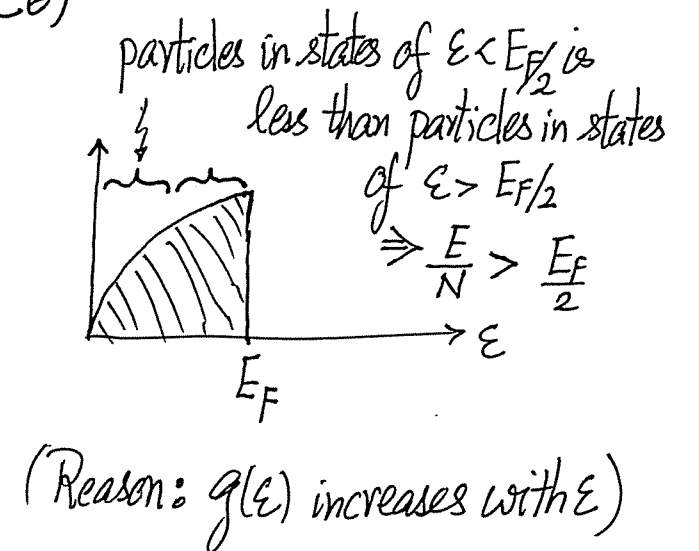 particles in states of ε < E_F/2 is
less than particles in states
of ε > E_F/2
⇒ E/N > E_F/2
ε
E_F
(Reason: g(ε) increases with ε)